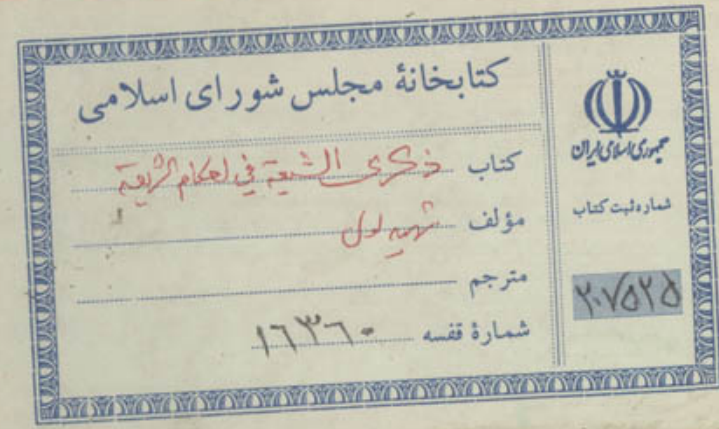 کتابخانهٔ مجلس شورای اسلامی
کتاب ذکری الشیعة في احکام الشریعة
مؤلف شهید اول
مترجم
شمارهٔ قفسه ۱۶۳۶۰
جمهوری اسلامی ایران
شماره ثبت کتاب
۲۰۷۵۲۵